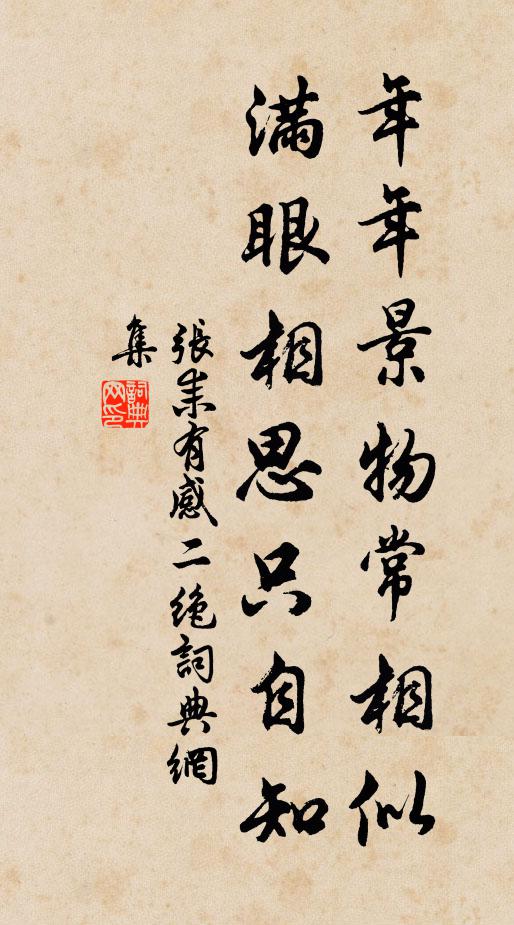 年年景物常相似
滿眼相思只自知
張耒有感二絶詞典網
集
詞典
网印